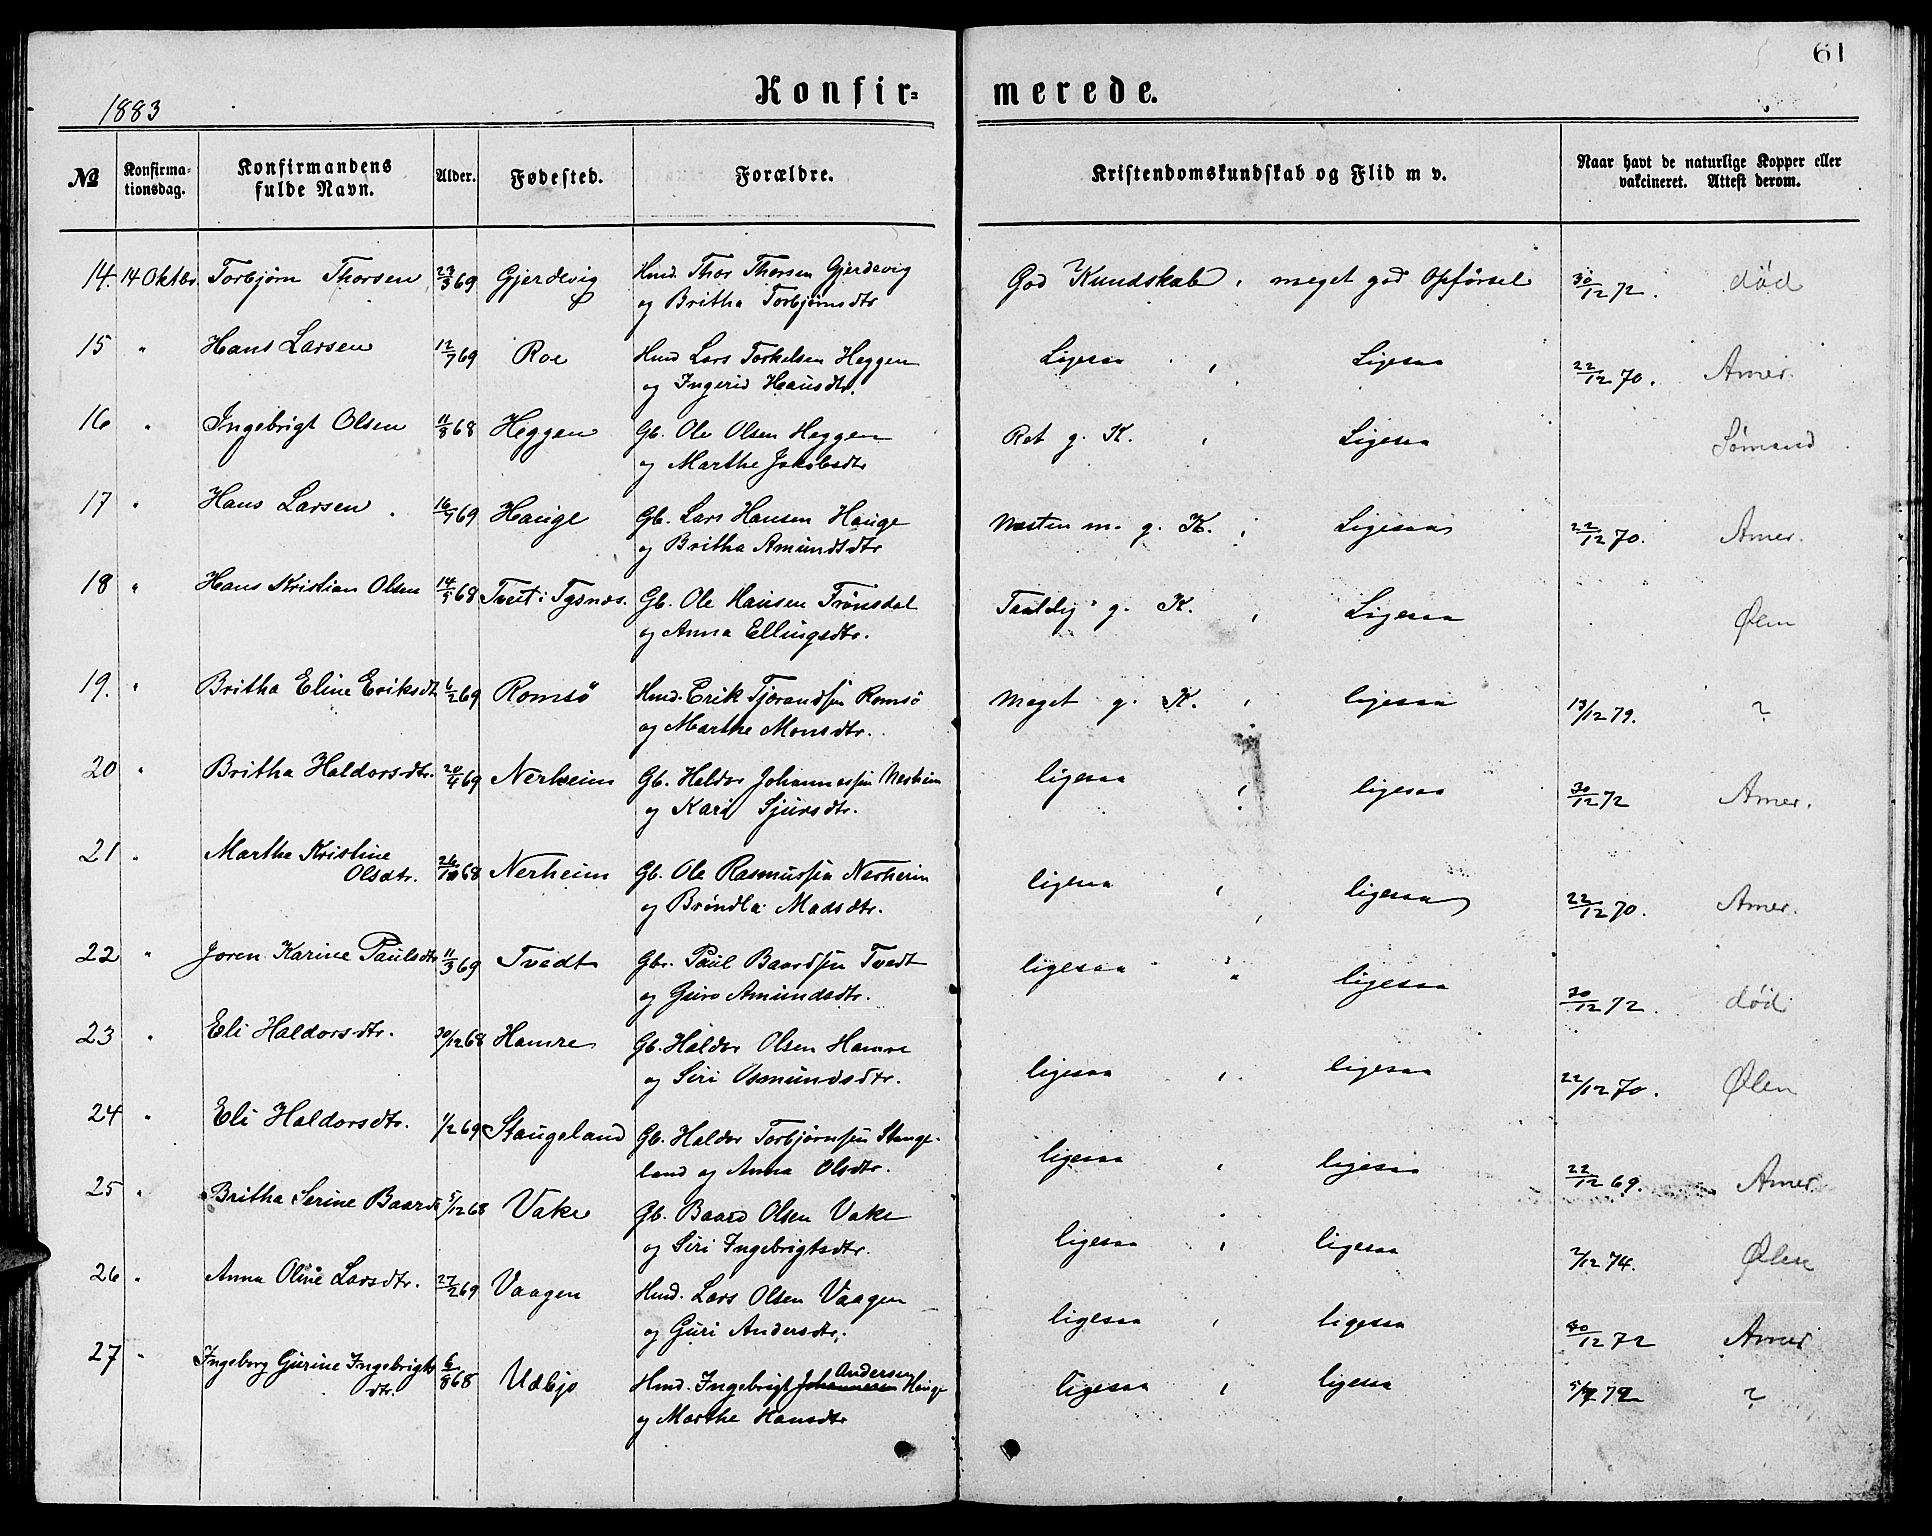 61
1883
Konfir=
merede.
№
Konfirma-
tionsdag.
Konfirmandens
fulde Navn.
Alder.
Fødested.
Forældre.
Kristendomskundskab og Flid m v.
Naar havt de naturlige Kopper eller
vakcineret. Attest derom.
14. 14 Oktbr. Torbjørn Thorsen 23/3 69 Gjerdevig Hmd. Thor Thorsen Gjerdevig God Kundskab, meget god Opførsel 30/12 72. død
og Britha Torbjørnsdtr
15 " Hans Larsen 12/7 69 Roe Hmd Lars Torkelsen Heggen Ligesaa , Ligesaa 22/12 70. Amer.
og Ingerid Hansdtr.
16 " Ingebrigt Olsen 11/8 68 Heggen Gb. Ole Olsen Heggen Ret g. K. , Ligesaa Sømand
og Marthe Jakobsdtr
17 " Hans Larsen 16/7 69 Hauge Gb. Lars Hansen Hauge Næsten m. g. K. , Ligesaa 22/12 70. Amer.
og Britha Amundsdtr
18 " Hans Kristian Olsen 14/5 68 Tveit i Tysnæs. Gb. Ole Hansen Frønsdal Taalelig g. K. , Ligesaa Ølen
og Anna Ellingsdtr.
19. " Britha Eline Eriksdt 6/2 69 Romsö Hmd. Erik Tjørandsen Romsö Meget g. K. , ligesaa 13/12 79. ?
og Marthe Monsdtr.
20 " Britha Haldorsdtr. 20/4 69 Nerheim Gb. Haldor Johannessen Nerheim ligesaa , ligesaa 30/12 72 Amer.
og Kari Sjursdtr.
21 " Marthe Kristine
Olsdtr. 26/10 68 Nerheim Gb. Ole Rasmussen Nerheim ligesaa , ligesaa 22/12 70. Amer.
og Bröndla Madsdtr.
22 " Joren Karine Paulsdtr 11/3 69 Tvedt Gbr. Paul Baardsen Tvedt ligesaa " ligesaa 30/12 72. død
og Guro Amundsdtr.
23 " Eli Haldorsdtr. 30/12 68 Hamre Gb. Haldor Olsen Hamre ligesaa , ligesaa 22/12 70. Ølen
og Siri Osmundsdtr.
24 " Eli Haldorsdtr. 1/2 69 Stangeland Gb. Haldor Torbjørnsen Stange- ligesaa , ligesaa 22/12 69. Amer
land og Anna Olsdtr.
25 " Britha Serine Baards 5/12 68 Vake Gb. Baard Olsen Vake ligesaa , ligesaa 2/12 74. Ølen
og Siri Ingebrigtsdtr.
26 " Anna Oline Larsdtr. 27/2 69 Vaagen Hmd. Lars Olsen Vaagen ligesaa , ligesaa 30/12 72 Amer
og Guri Andersdtr.
27 " Ingeborg Gurine Ingebrigts
dtr. 6/8 68 Udbjo Hmd. Ingebrigt Johannessen Andersen Hauge ligesaa , ligesaa 72 ?
og Marthe Hansdtr